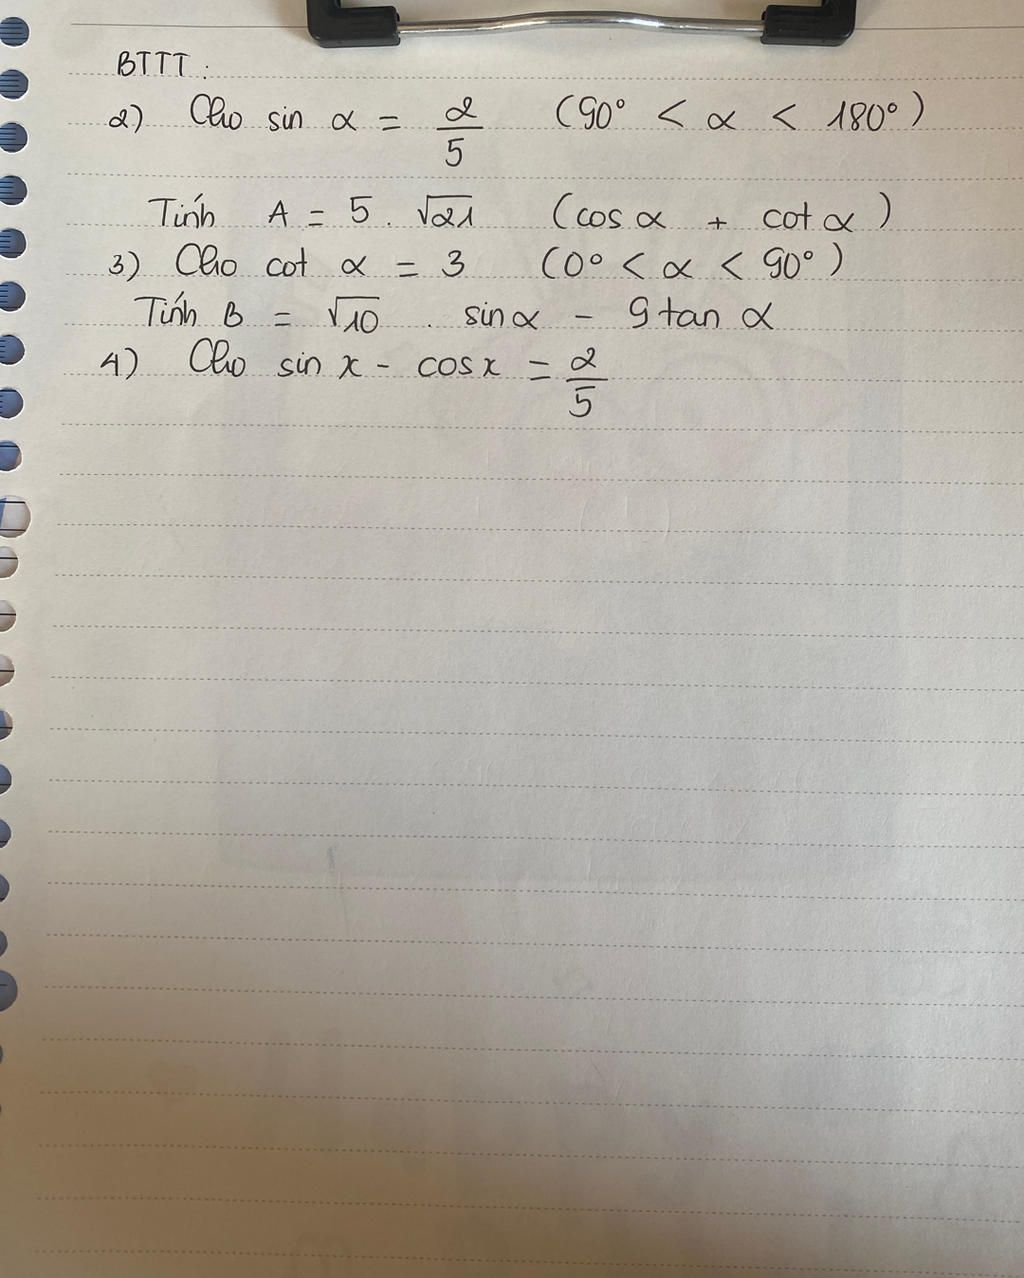 BTTT :
2) Cho sin α = 2/5 (90° < α < 180°)
Tính A = 5 . √21 (cos α + cot α)
3) Cho cot α = 3 (0° < α < 90°)
Tính B = √10 . sin α - 9 tan α
4) Cho sin x - cos x = 2/5